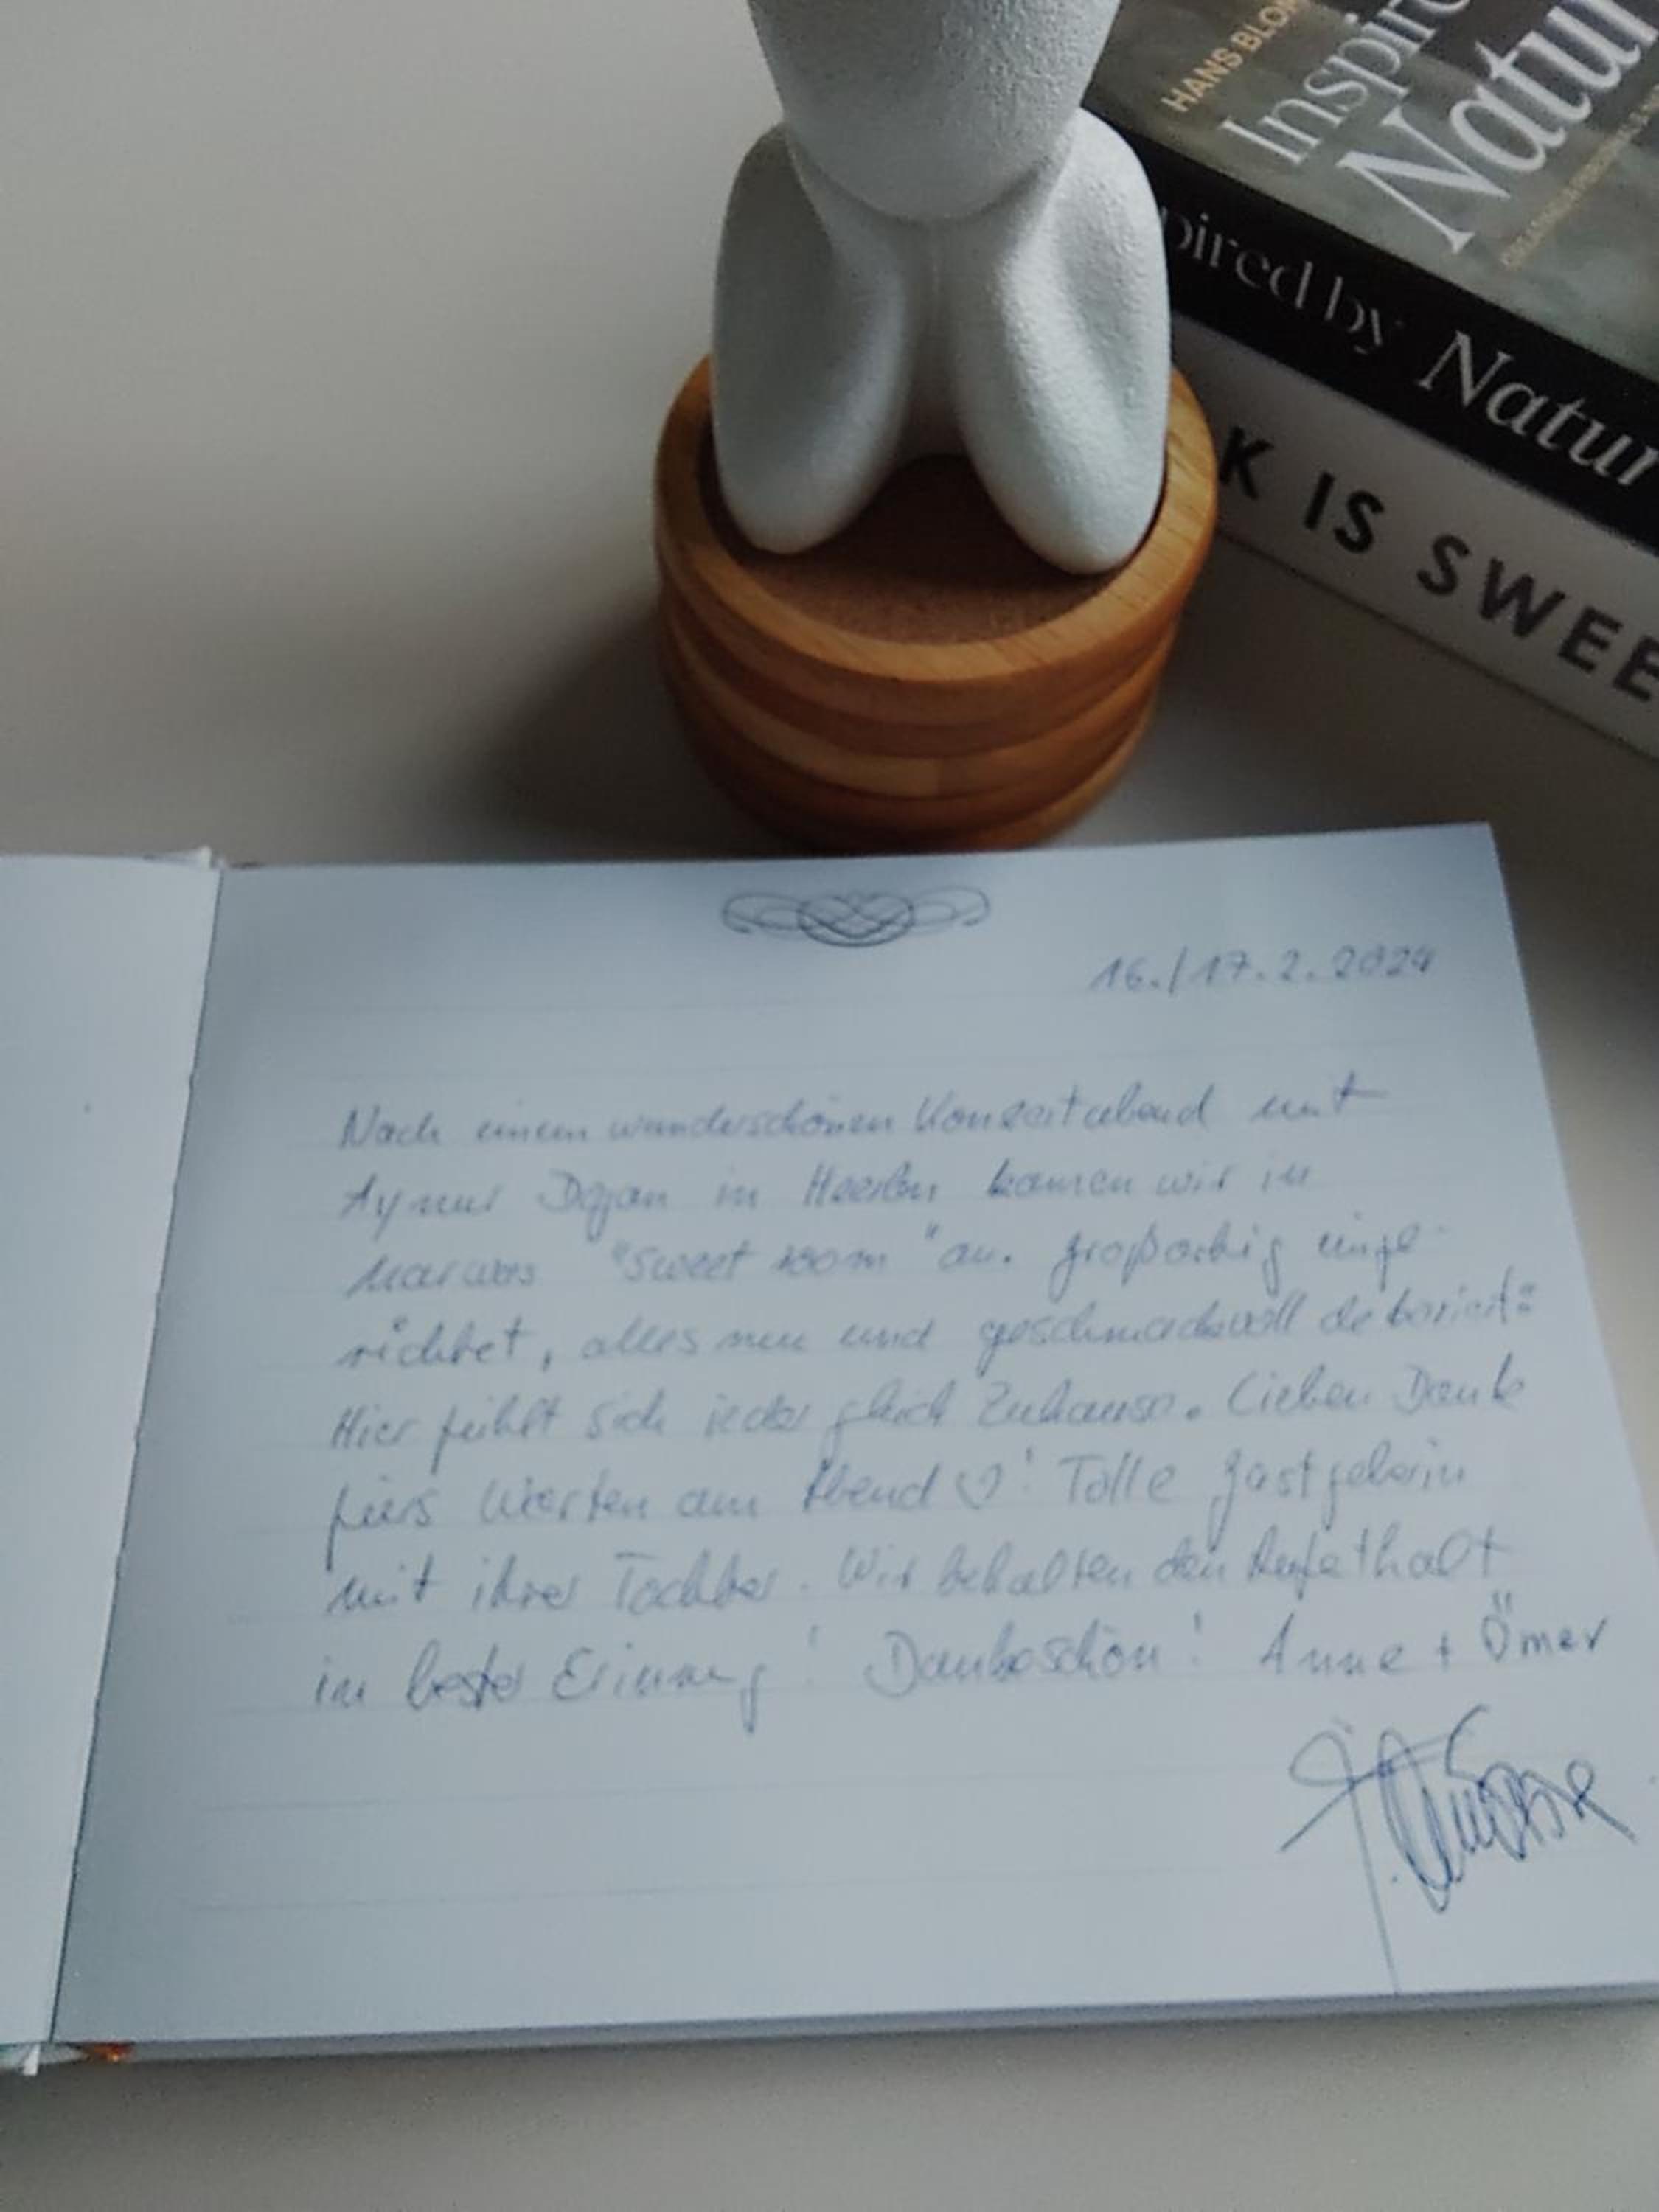 HANS BLOM
Inspire
Natur
pired by Natur
K IS SWEE
16./17.2.2024
Nach einem wunderschönen Konzertabend mit
Aynur Dogan in Heerlen kamen wir in
"Sweet room" an. Großartig einge-
richtet, alles neu und geschmackvoll dekoriert:
Hier fühlt sich jeder gleich Zuhause. Lieben Dank
fürs Warten am Abend ♡! Tolle Gastgeberin
mit ihrer Tochter. Wir behalten den Aufethalt
in bester Erinnerung! Dankeschön! Anne + Ömer